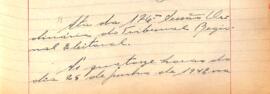 Ata da 124ª Sessão Or
dinária do Tribunal Regio
nal Eleitoral.
Às quatorze horas do
dia 28 de junho de 1942 na